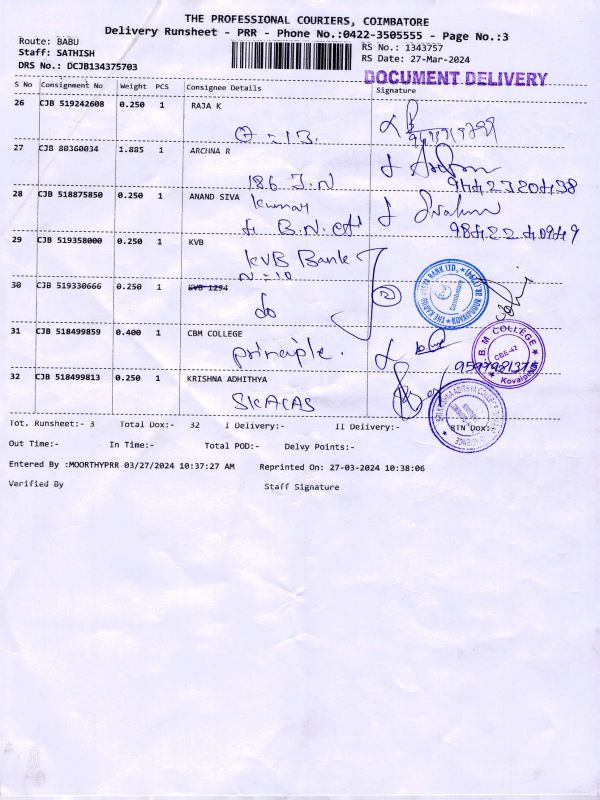 THE PROFESSIONAL COURIERS, COIMBATORE
Delivery Runsheet - PRR - Phone No.:0422-3505555 - Page No.:3
Route: BABU
Staff: SATHISH
DRS No.: DCJB134375703
RS No.: 1343757
RS Date: 27-Mar-2024
DOCUMENT DELIVERY
S No Consignment No Weight PCS Consignee Details Signature
26 CJB 519242608 0.250 1 RAJA K
27 CJB 80360034 1.885 1 ARCHNA R
186 J.N
9442320438
28 CJB 518875850 0.250 1 ANAND SIVA
kumar
9842240949
29 CJB 519358000 0.250 1 KVB
KVB Bank
N=10
30 CJB 519330666 0.250 1 KVB 1294
do
2
31 CJB 518499859 0.400 1 CBM COLLEGE
principle.
32 CJB 518499813 0.250 1 KRISHNA ADHITHYA
SKACAS
Tot. Runsheet:- 3 Total Dox:- 32 I Delivery:- II Delivery:- RTN Dox:
Out Time:- In Time:- Total POD:- Delvy Points:-
Entered By :MOORTHYPRR 03/27/2024 10:37:27 AM Reprinted On: 27-03-2024 10:38:06
Verified By Staff Signature